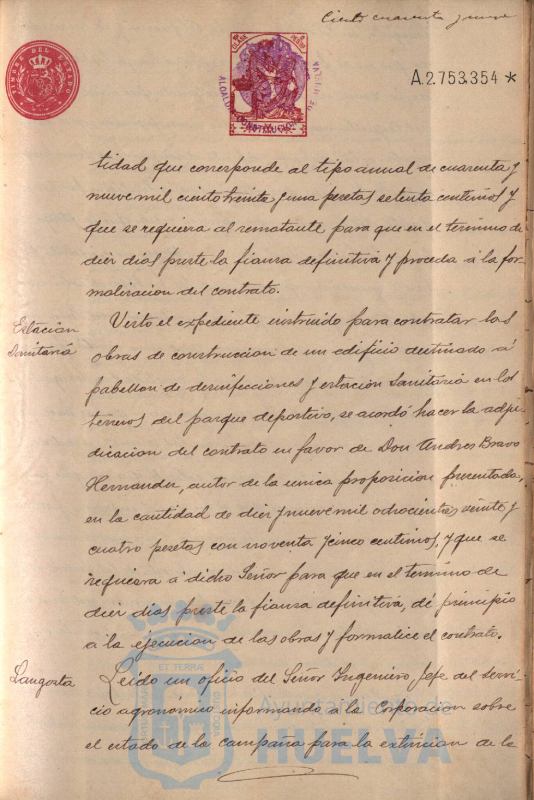 Ciento cuarenta y nueve
TIMBRE DEL ESTADO
ALCALDIA CONSTITUCIONAL DE HUELVA
A.2.753.354 *
tidad que corresponde al tipo anual de cuarenta y
nueve mil ciento treinta y una pesetas setenta centimos y
que se requiera al rematante para que en el termino de
diez dias preste la fianza definitiva y proceda á la for-
malizacion del contrato.
Estacion
Sanitaria
Visto el expediente instruido para contratar las
obras de construccion de un edificio destinado á
pabellon de desinfecciones y estacion Sanitaria en los
terrenos del parque deportivo, se acordó hacer la adju-
dicacion del contrato en favor de Don Andres Bravo
Hernandez, autor de la unica proposicion presentada,
en la cantidad de diez y nueve mil ochocientas veinte y
cuatro pesetas con noventa y cinco centimos, y que se
requiera á dicho Señor para que en el termino de
diez dias preste la fianza definitiva, dé principio
á la ejecucion de las obras y formalice el contrato.
Langosta
Leido un oficio del Señor Ingeniero, Jefe del servi-
cio agronómico informando á la Corporacion sobre
el estado de la campaña para la extincion de la
Ayuntamiento de
HUELVA